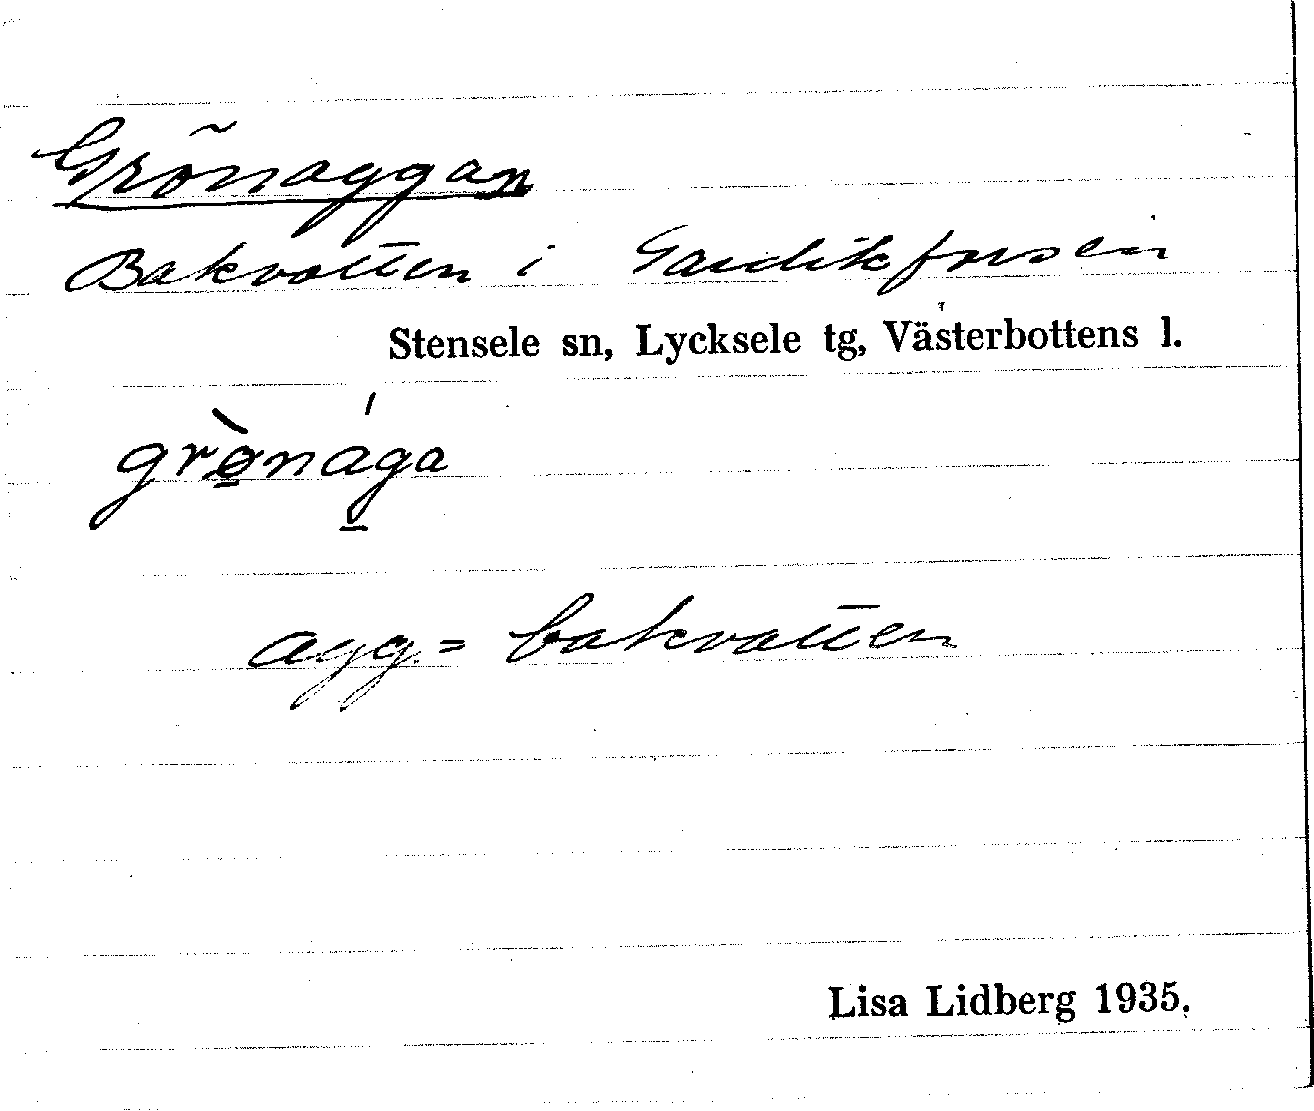 Grönaggan
Bakvatten i Gardikforsen
Stensele sn, Lycksele tg, Västerbottens l.
grò̱nága̱
agg = bakvatten
Lisa Lidberg 1935.